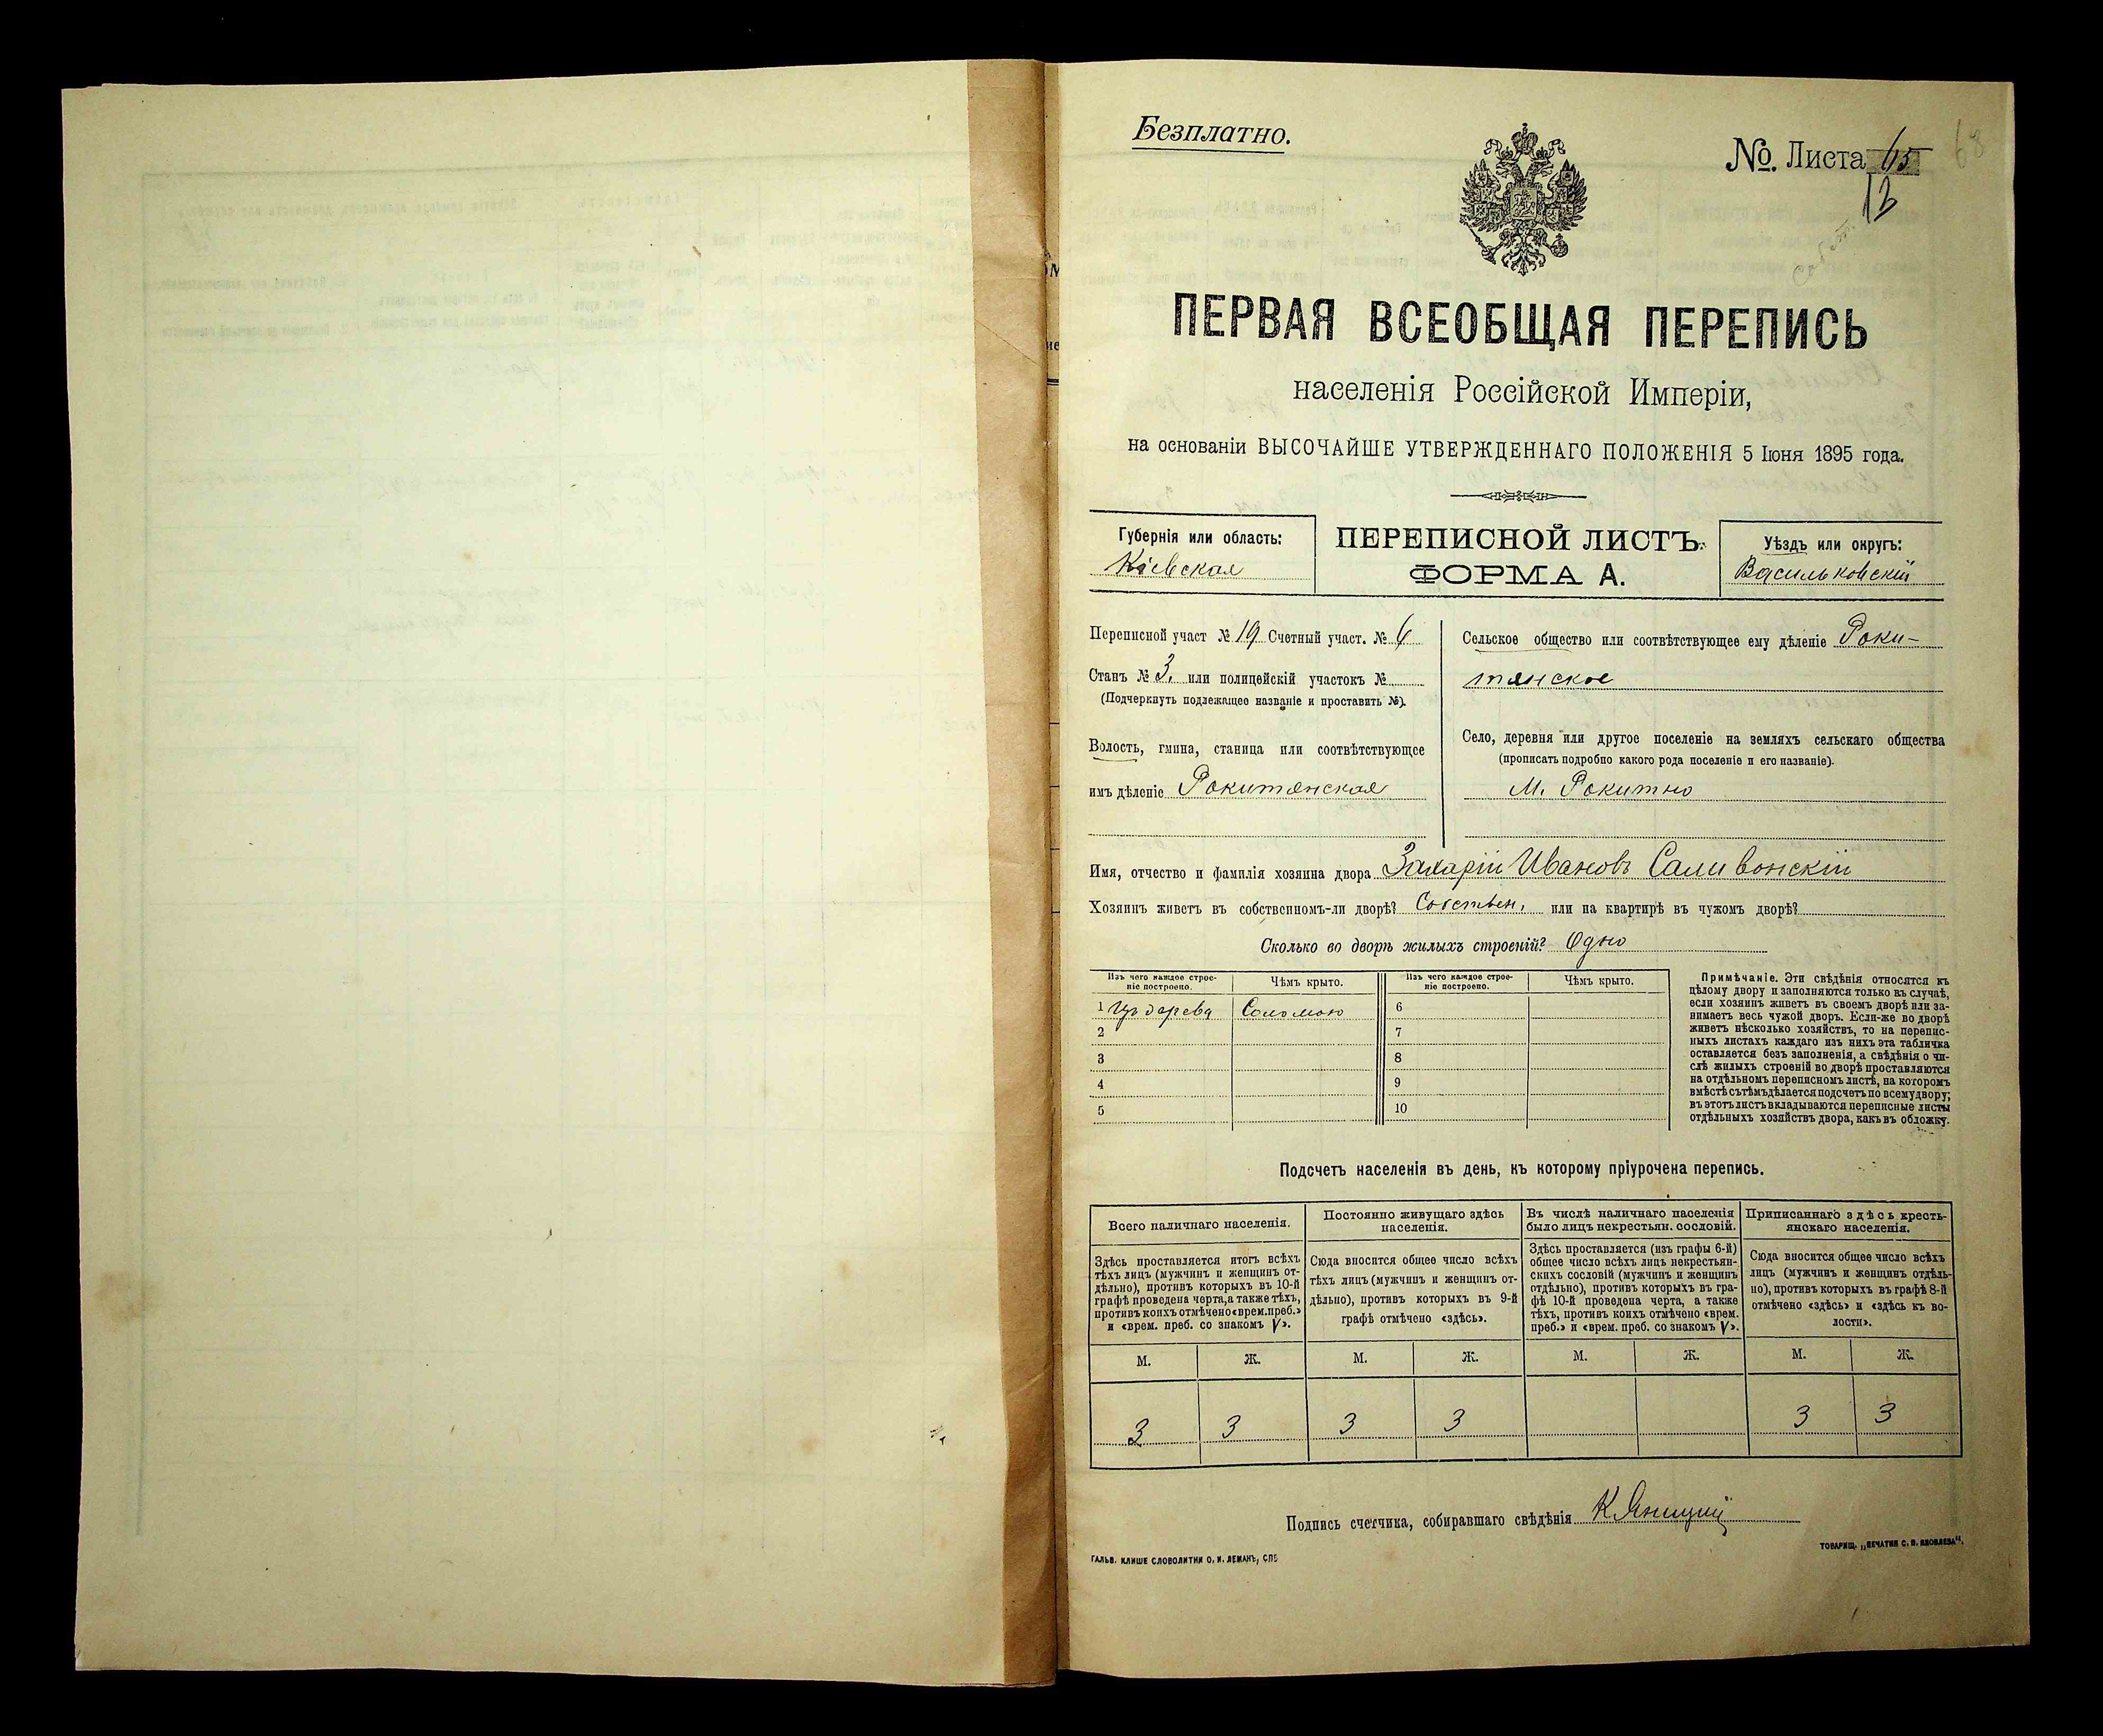 Безплатно.
№. Листа 65
12
68
ПЕРВАЯ ВСЕОБЩАЯ ПЕРЕПИСЬ
населенія Россійской Имперіи,
на основаніи ВЫСОЧАЙШЕ УТВЕРЖДЕННАГО ПОЛОЖЕНІЯ 5 Іюня 1895 года.
Губернія или область:
Кіевская
ПЕРЕПИСНОЙ ЛИСТЪ.
ФОРМА А.
Уѣздъ или округъ:
Васильковскій
Переписной участ № 19 Счетный участ. № 6
Станъ № 3. или полицейскій участокъ №
(Подчеркнуть подлежащее названіе и проставить №).
Волость, гмина, станица или соотвѣтствующее
имъ дѣленіе Рокитянская
Сельское общество или соотвѣтствующее ему дѣленіе Роки-
тянское
Село, деревня или другое поселеніе на земляхъ сельскаго общества
(прописать подробно какого рода поселеніе и его названіе).
М. Рокитно
Имя, отчество и фамилія хозяина двора Захарій Ивановъ Саливонскій
Хозяинъ живетъ въ собственномъ-ли дворѣ? Собствен. или на квартирѣ въ чужомъ дворѣ?
Сколько во дворѣ жилыхъ строеній? Одно
Изъ чего каждое строе-
ніе построено.
Чѣмъ крыто.
Изъ чего каждое строе-
ніе построено.
Чѣмъ крыто.
1 Изъ дерева Соломою 6
2 7
3 8
4 9
5 10
Примѣчаніе. Эти свѣдѣнія относятся къ
цѣлому двору и заполняются только въ случаѣ,
если хозяинъ живетъ въ своемъ дворѣ или за-
нимаетъ весь чужой дворъ. Если-же во дворѣ
живетъ нѣсколько хозяйствъ, то на перепис-
ныхъ листахъ каждаго изъ нихъ эта табличка
оставляется безъ заполненія, а свѣдѣнія о чи-
слѣ жилыхъ строеній во дворѣ проставляются
на отдѣльномъ переписномъ листѣ, на которомъ
вмѣстѣ съ тѣмъ дѣлается подсчетъ по всему двору;
въ этотъ листъ вкладываются переписные листы
отдѣльныхъ хозяйствъ двора, какъ въ обложку.
Подсчетъ населенія въ день, къ которому пріурочена перепись.
Всего наличнаго населенія.
Здѣсь проставляется итогъ всѣхъ
тѣхъ лицъ (мужчинъ и женщинъ от-
дѣльно), противъ которыхъ въ 10-й
графѣ проведена черта, а также тѣхъ,
противъ коихъ отмѣчено «врем. преб.»
и «врем. преб. со знакомъ V».
Постоянно живущаго здѣсь
населенія.
Сюда вносится общее число всѣхъ
тѣхъ лицъ (мужчинъ и женщинъ от-
дѣльно), противъ которыхъ въ 9-й
графѣ отмѣчено «здѣсь».
Въ числѣ наличнаго населенія
было лицъ некрестьян. сословій.
Здѣсь проставляется (изъ графы 6-й)
общее число всѣхъ лицъ некрестьян-
скихъ сословій (мужчинъ и женщинъ
отдѣльно), противъ которыхъ въ гра-
фѣ 10-й проведена черта, а также
тѣхъ, противъ коихъ отмѣчено «врем.
преб.» и «врем. преб. со знакомъ V».
Приписаннаго здѣсь кресть-
янскаго населенія.
Сюда вносится общее число всѣхъ
лицъ (мужчинъ и женщинъ отдѣль-
но), противъ которыхъ въ графѣ 8-й
отмѣчено «здѣсь» и «здѣсь къ во-
лости».
М. Ж. М. Ж. М. Ж. М. Ж.
3 3 3 3 3 3
Подпись счетчика, собиравшаго свѣдѣнія К Яницкий
ГАЛЬВ. КЛИШЕ СЛОВОЛИТНИ О. И. ЛЕМАНЪ, СПБ
ТОВАРИЩ. „ПЕЧАТНЯ С. П. ЯКОВЛЕВА".